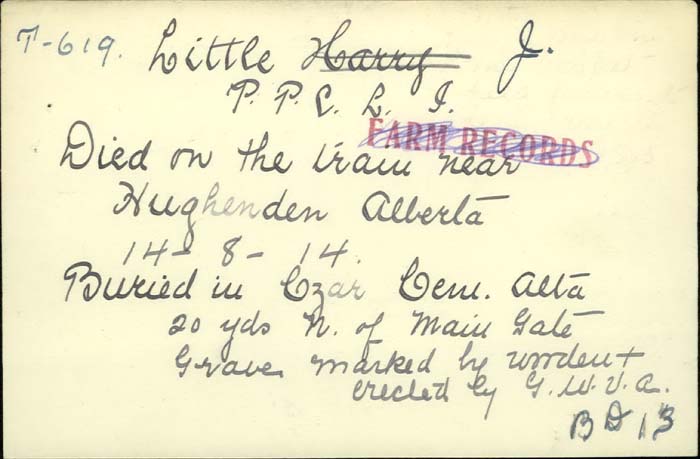 T-619. Little Harry J.
P. P. C. L. I.
FARM RECORDS
Died on the train near
Hughenden Alberta
14- 8- 14.
Buried in Czar Cem. Alta
20 yds N. of Main Gate
Grave marked by wooden +
erected by G. W. V. A.
BD 13